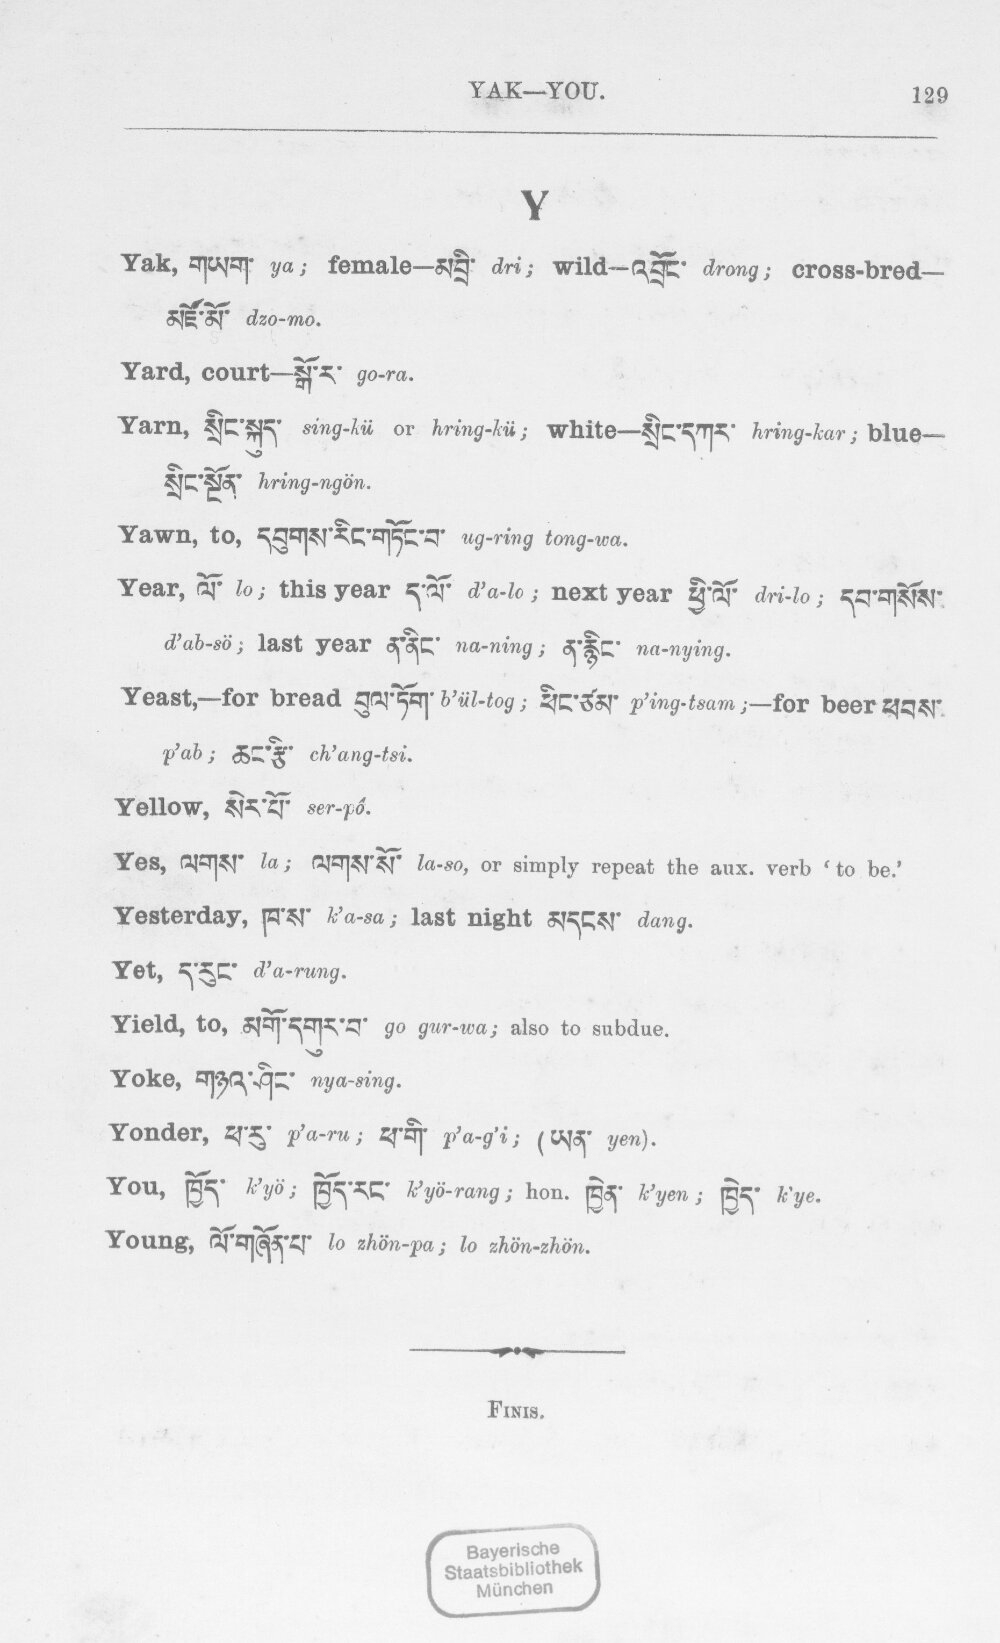 YAK—YOU.
129
Y
Yak, གཡག་ ya; female—མབྲི་ dri; wild—འབྲོང་ drong; cross-bred—
མཛོ་མོ་ dzo-mo.
Yard, court—སྒོ་ར་ go-ra.
Yarn, སྲིང་སྐུད་ sing-kü or hring-kü; white—སྲིང་དཀར་ hring-kar; blue—
སྲིང་སྔོན་ hring-ngön.
Yawn, to, དབུགས་རིང་གཏོང་བ་ ug-ring tong-wa.
Year, ལོ་ lo; this year ད་ལོ་ d’a-lo; next year ཕྱི་ལོ་ dri-lo; དབ་གསོས་
d’ab-sö; last year ན་ནིང་ na-ning; ན་རྙིང་ na-nying.
Yeast,—for bread བུལ་ཏོག་ b’ül-tog; ཕིང་ཙམ་ p’ing-tsam;—for beer ཕབས་
p’ab; ཆང་རྩི་ ch’ang-tsi.
Yellow, སེར་པོ་ ser-pó.
Yes, ལགས་ la; ལགས་སོ་ la-so, or simply repeat the aux. verb ‘to be.’
Yesterday, ཁ་ས་ k’a-sa; last night མདངས་ dang.
Yet, ད་རུང་ d’a-rung.
Yield, to, མགོ་དགུར་བ་ go gur-wa; also to subdue.
Yoke, གཉའ་ཤིང་ nya-sing.
Yonder, ཕ་རུ་ p’a-ru; ཕ་གི་ p’a-g’i; (ཡན་ yen).
You, ཁྱོད་ k’yö; ཁྱོད་རང་ k’yö-rang; hon. ཁྱེན་ k’yen; ཁྱེད་ k’ye.
Young, ལོ་གཞོན་པ་ lo zhön-pa; lo zhön-zhön.
FINIS.
Bayerische
Staatsbibliothek
München